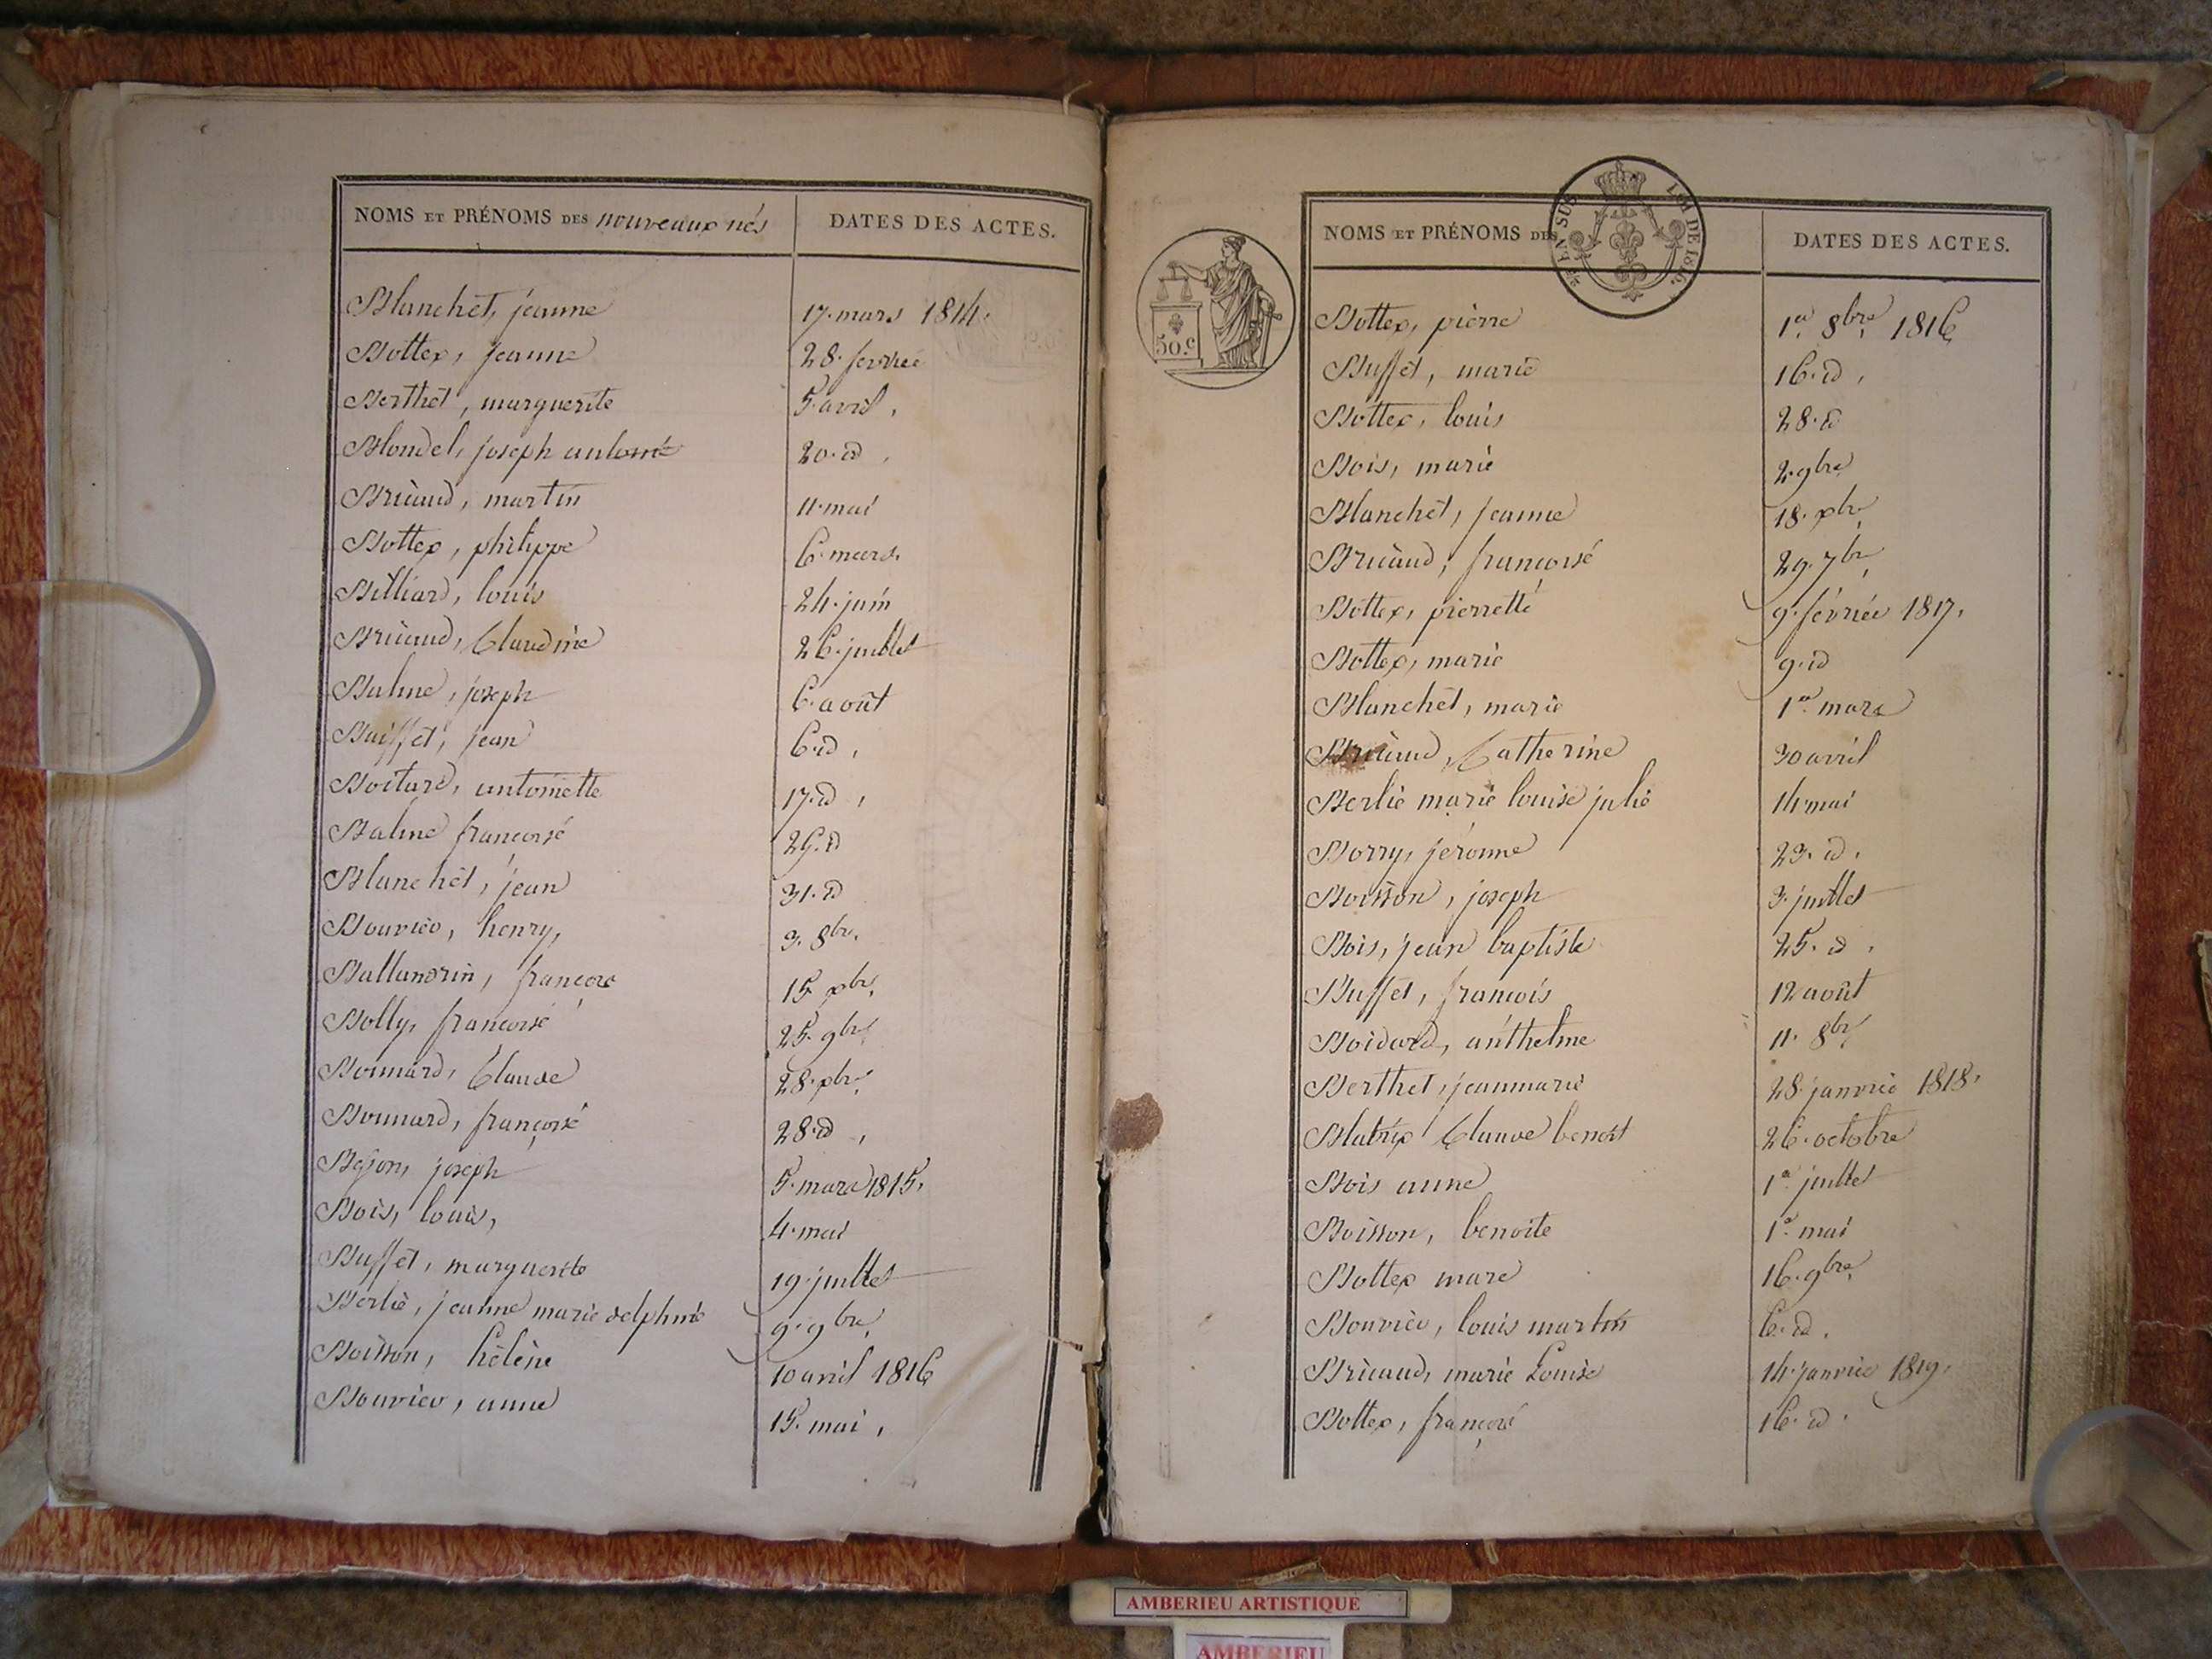 NOMS ET PRÉNOMS DES nouveaux nés DATES DES ACTES.
Blanchet, jeanne 17. mars 1814.
Bottex, jeanne 28. fevrier
Berthet, marguerite 5 avril,
Blondel, joseph antoine 20. id,
Bricaud, martin 11. mai
Bottex, philippe 6. mars.
Billiard, louis 24. juin
Bricaud, Claudine 26. juillet
Balme, joseph 6. août
Buffet, jean 6. id,
Boitard, antoinette 17. id,
Balme françoise 29. id
Blanchet, jean 31. id
Bouvier, henry, 3. 8bre.
Ballandrin, 15 xbre,
Bolly, françoise 25. 9bre
Bonnard, Claude 28. xbre,
Bonnard, françoise 28. id,
Bejon, joseph 5. mars 1815.
Bois, louis, 4. mai
Buffet, marguerite 19. juillet
Berlie, jeanne marie delphine 9. 9bre,
Boisson, hélène 10 avril 1816
Bouvier, anne 15. mai,
NOMS ET PRÉNOMS DES DATES DES ACTES.
EN SUS
LOI DE 1816.
50.c
Bottex, pierre 1er. 8bre. 1816
Buffet, marie 16. id,
Bottex, louis 28. id
Bois, marie 2. 9bre
Blanchet, jeanne 18. xbre,
Bricaud, françoise 29. 7bre,
Bottex, pierrette 9. février 1817.
Bottex, marie 9. id
Blanchet, marie 1er mars
Bricaud, Catherine 30 avril
Berlie marie louise julie 14. mai
Borry, jérome 23. id.
Boisson, joseph 3. juillet
Bois, jean baptiste 25. id.
Buffet, françois 12 août
Boidard, anthelme 11. 8bre
Berthet, jeanmarie 28. janvier 1818.
Blatrix Claude benoit 26. octobre
Bois anne 1er juillet
Boisson, benoite 1er mai
Bottex marc 16. 9bre,
Bouvier, louis martin 6. id.
Bricaud, marie Louise 14. janvier 1819.
Bottex, 16. id.
AMBERIEU ARTISTIQUE
AMBERIEU